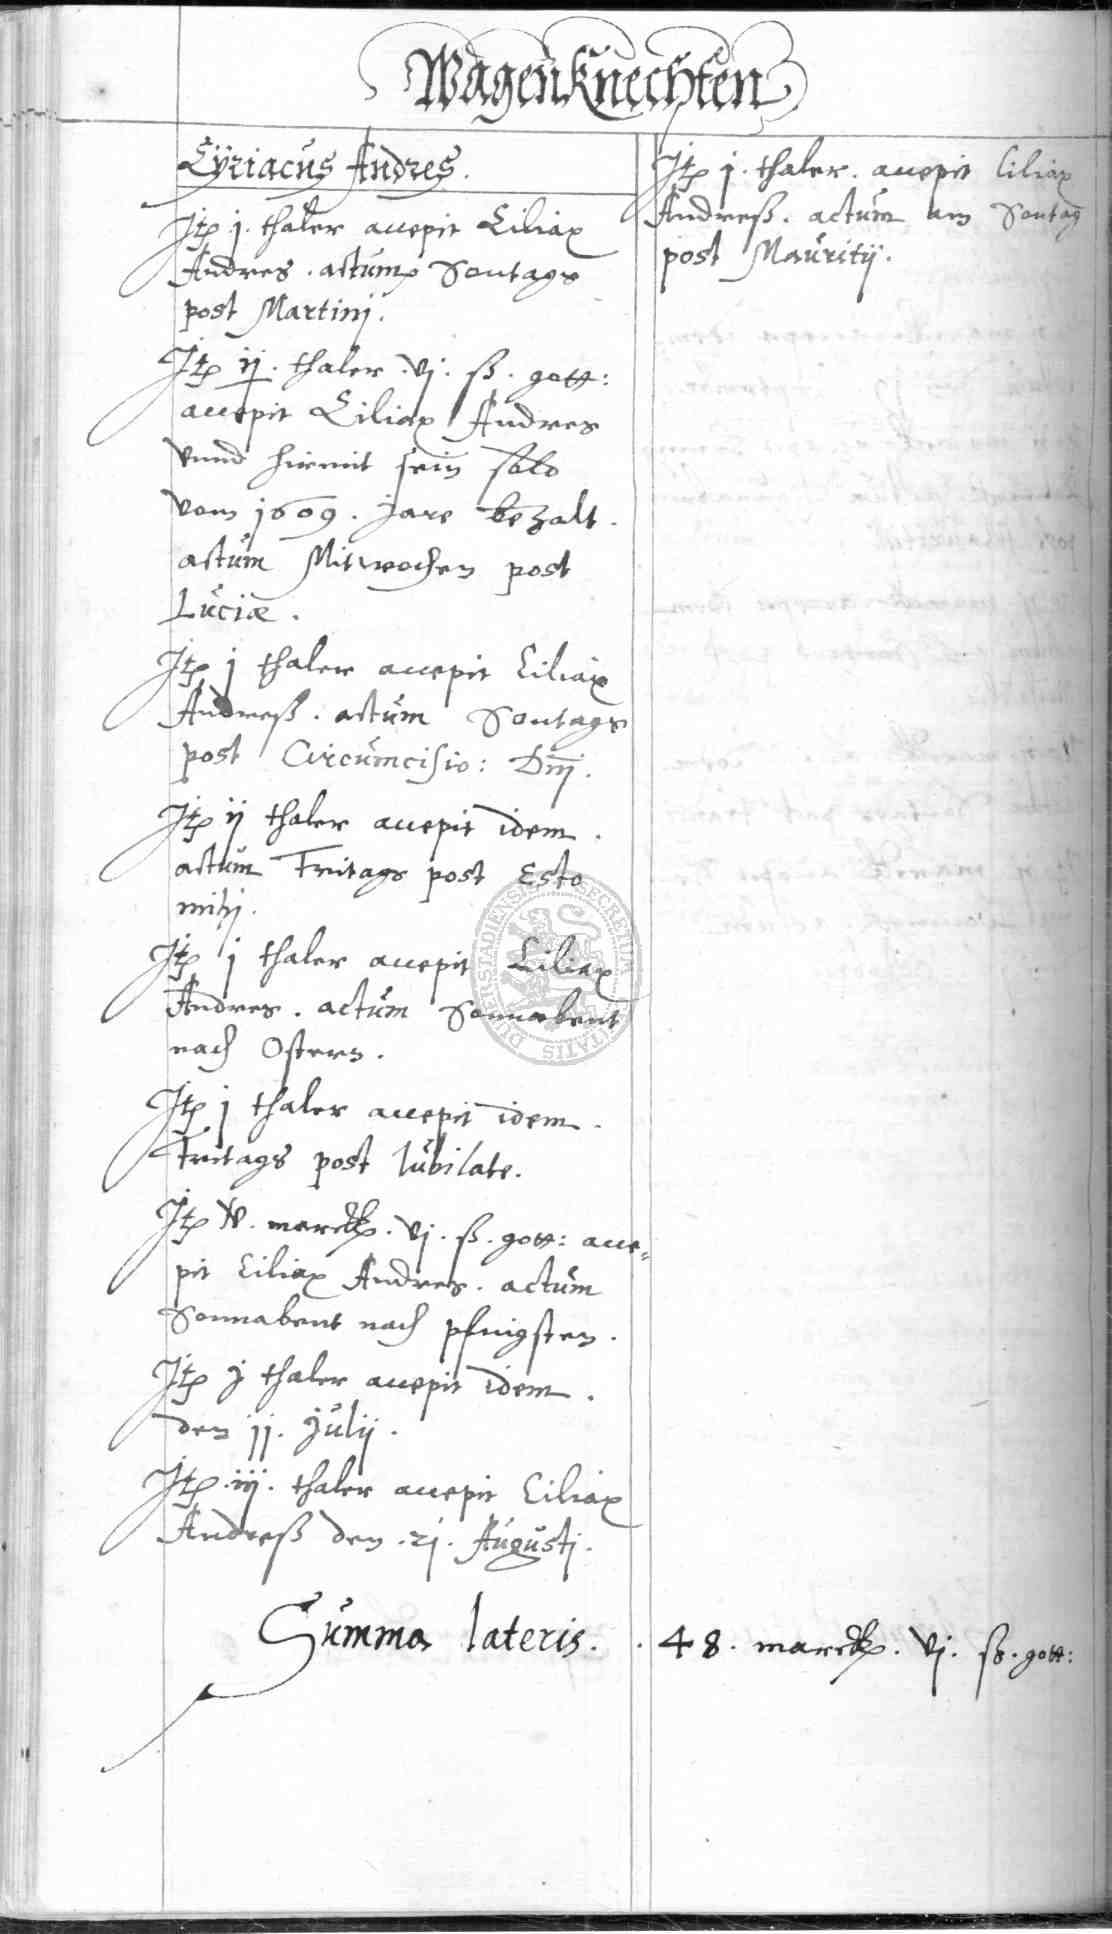 Wagenknechten
Cÿriacus Andres.
Itꝫ j. thaler accepit Ciliax
Andres. actum Sontags
post Martinj.
Itꝫ ij. thaler. vj. ß. gott:
accepit Ciliax Andres
vnnd hiemit sein sold
vom 1609. Jare bezalt.
actum Mitwochen post
Luciæ.
Itꝫ j thaler accepit Ciliax
Andreß. actum Sontags
post Circumcisio: Dnj.
Itꝫ ij thaler accepit idem.
actum Freitags post Esto
mihj.
Itꝫ j thaler accepit Ciliax
Andres. actum Sonnabent
nach Ostern.
Itꝫ j thaler accepit idem.
Freitags post Iubilate.
Itꝫ marck. vj. ß. gott: acce-
pit Ciliax Andres. actum
Sonnabent nach pfingsten.
Itꝫ j thaler accepit idem.
den jj. Julij.
Itꝫ .iij. thaler accepit Ciliax
Andreß den .21. Augustj.
Itꝫ j. thaler. accepit Ciliax
Andreß. actum am Sontag
post Mauritij.
Summa lateris. . 48. marck. vj. ß. gott:
SECRETUM CIVITATIS DUDERSTADIENSIS